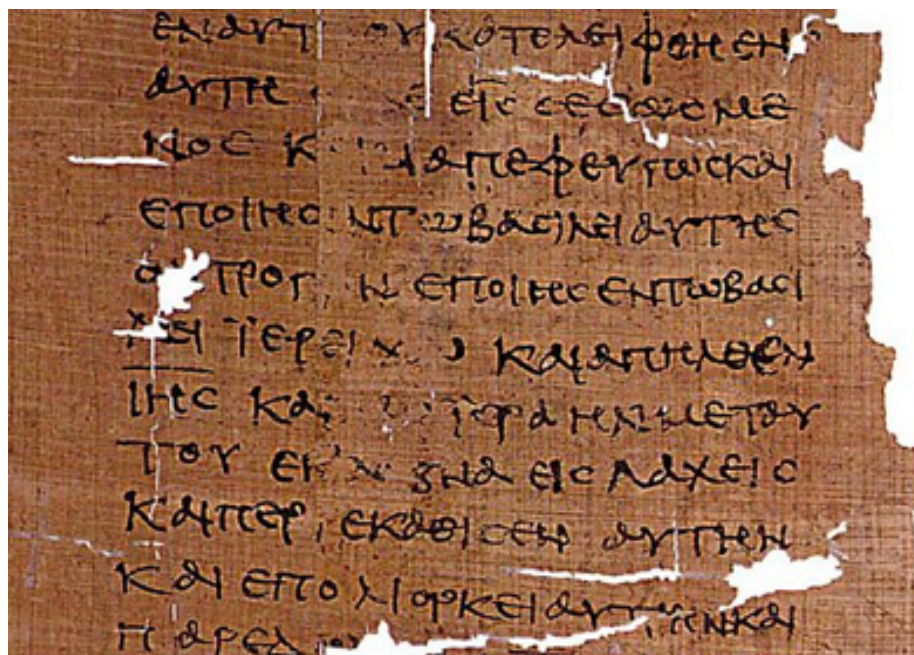 ΕΝ ΑΥΤ ΟΥ ΚΑΤΕΛΕΙΦΘΗ ΕΝ
ΑΥΤΗ ΕΙϹ ϹΕϹΩϹΜΕ
ΝΟϹ Κ ΑΠΕΦΕΥΓΩϹ ΚΑΙ
ΕΠΟΙΗϹ Ν ΤΩ ΒΑϹΙΛΕΙ ΑΥΤΗϹ
Ο ΤΡΟΠ Ν ΕΠΟΙΗϹΕΝ ΤΩ ΒΑϹΙ
ΛΕΙ ΪΕΡΕΙΧΩ ΚΑΙ ΑΠΗΛΘΕΝ
ΙΗϹ ΚΑΙ ΪϹΡΑΗΛ ΜΕΤ ΑΥ
ΤΟΥ ΕΚ ΝΑ ΕΙϹ ΛΑΧΕΙϹ
ΚΑΙ ΠΕΡΙΕΚΑΘΙϹΕΝ ΑΥΤΗΝ
ΚΑΙ ΕΠΟΛΙΟΡΚΕΙ ΑΥΤΗΝ ΚΑΙ
ΠΑΡΕΔ